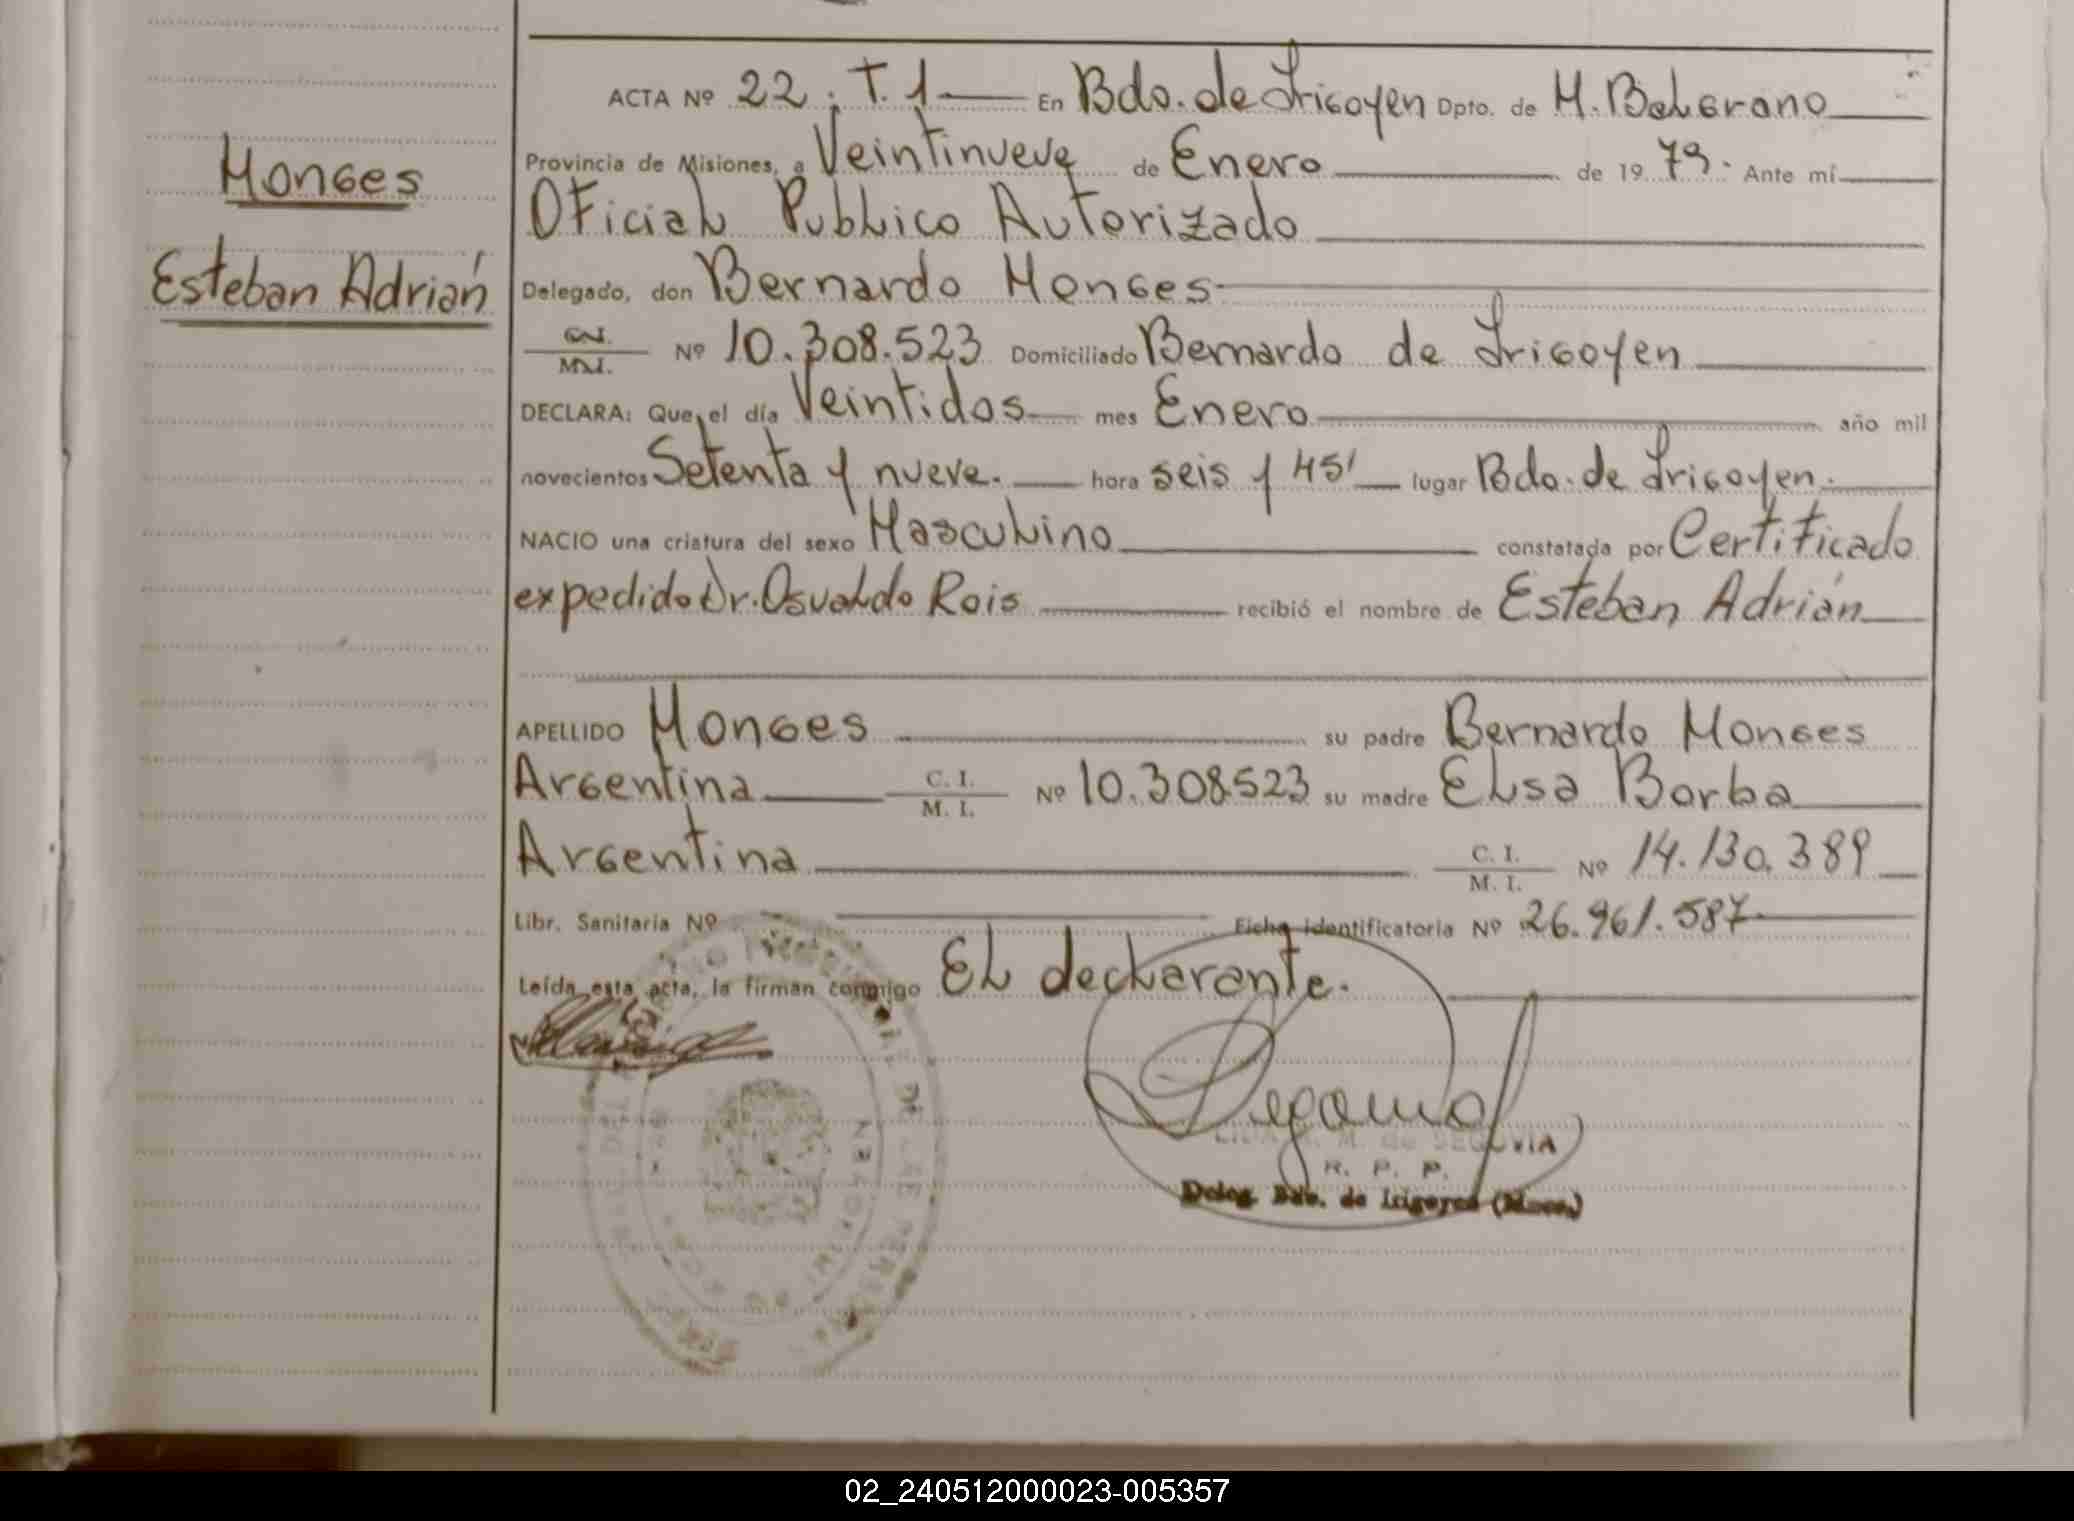 ACTA Nº 22. T. 1 En Bdo. de Irigoyen Dpto. de M. Belgrano
Provincia de Misiones, a Veintinueve de Enero de 19 79. Ante mí
Oficial Publico Autorizado
Monges
Esteban Adrián
Delegado, don Bernardo Monges
C.I. M.I. Nº 10.308.523 Domiciliado Bernardo de Irigoyen
DECLARA: Que el día Veintidos mes Enero año mil
novecientos Setenta y nueve. hora seis y 45' lugar Bdo. de Irigoyen.
NACIO una criatura del sexo Masculino constatada por Certificado
expedido Dr. Osvaldo Rois recibió el nombre de Esteban Adrián
APELLIDO Monges su padre Bernardo Monges
Argentina C. I. M. I. Nº 10.308523 su madre Elsa Borba
Argentina C. I. M. I. Nº 14.130.389
Libr. Sanitaria Nº Ficha identificatoria Nº 26.961.587
Leída esta acta, la firman conmigo El declarante.
M. de SEGOVIA
R. P. P.
Deleg. Bdo. de Irigoyen (Mnes.)
02_240512000023-005357